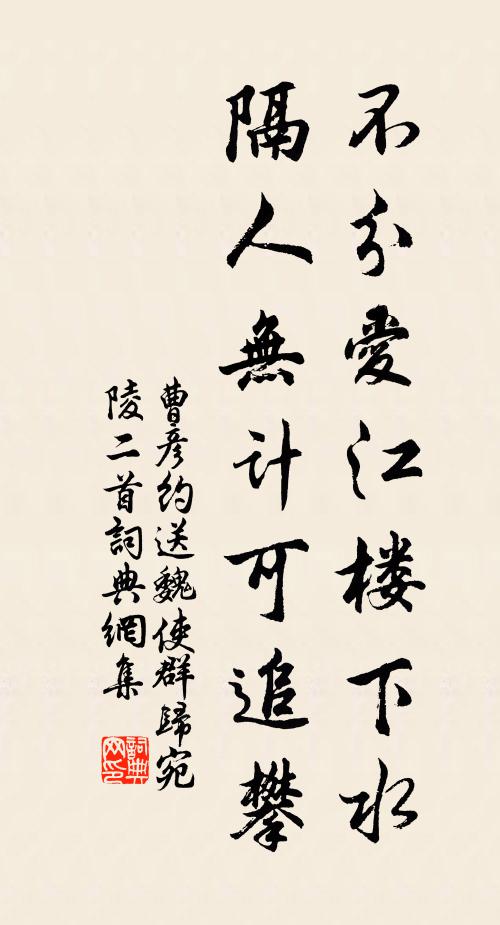 不分愛江楼下水
隔人無计可追攀
曹彦约送魏使群歸宛
陵二首詞典網集
詞典网印